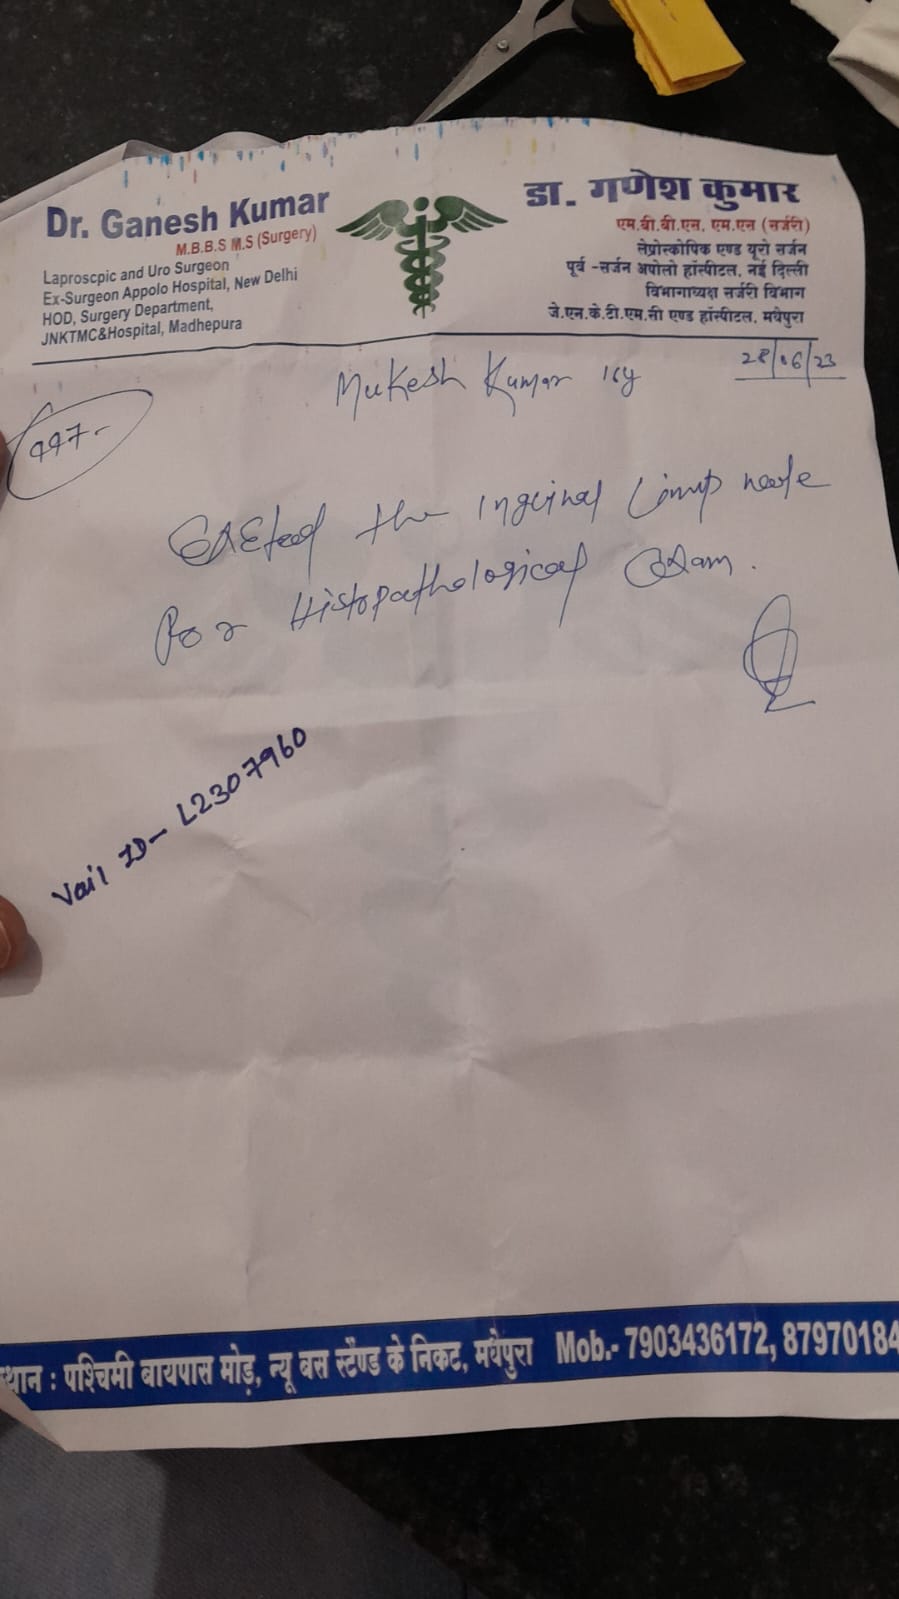 Dr. Ganesh Kumar
M.B.B.S M.S (Surgery)
Laproscpic and Uro Surgeon
Ex-Surgeon Appolo Hospital, New Delhi
HOD, Surgery Department,
JNKTMC&Hospital, Madhepura
डा. गणेश कुमार
एम.बी.बी.एस. एम.एस (सर्जरी)
लेप्रोस्कोपिक एण्ड यूरो सर्जन
पूर्व -सर्जन अपोलो हॉस्पीटल, नई दिल्ली
विभागाध्यक्ष सर्जरी विभाग
जे.एन.के.टी.एम.सी एण्ड हॉस्पीटल, मधेपुरा
28/06/23
Mukesh Kumar 16y
the Inguinal Limp node
For Histopathological Exam.
Vail ID- L2307960
थान : पश्चिमी बायपास मोड़, न्यू बस स्टैण्ड के निकट, मधेपुरा Mob.- 7903436172, 87970184